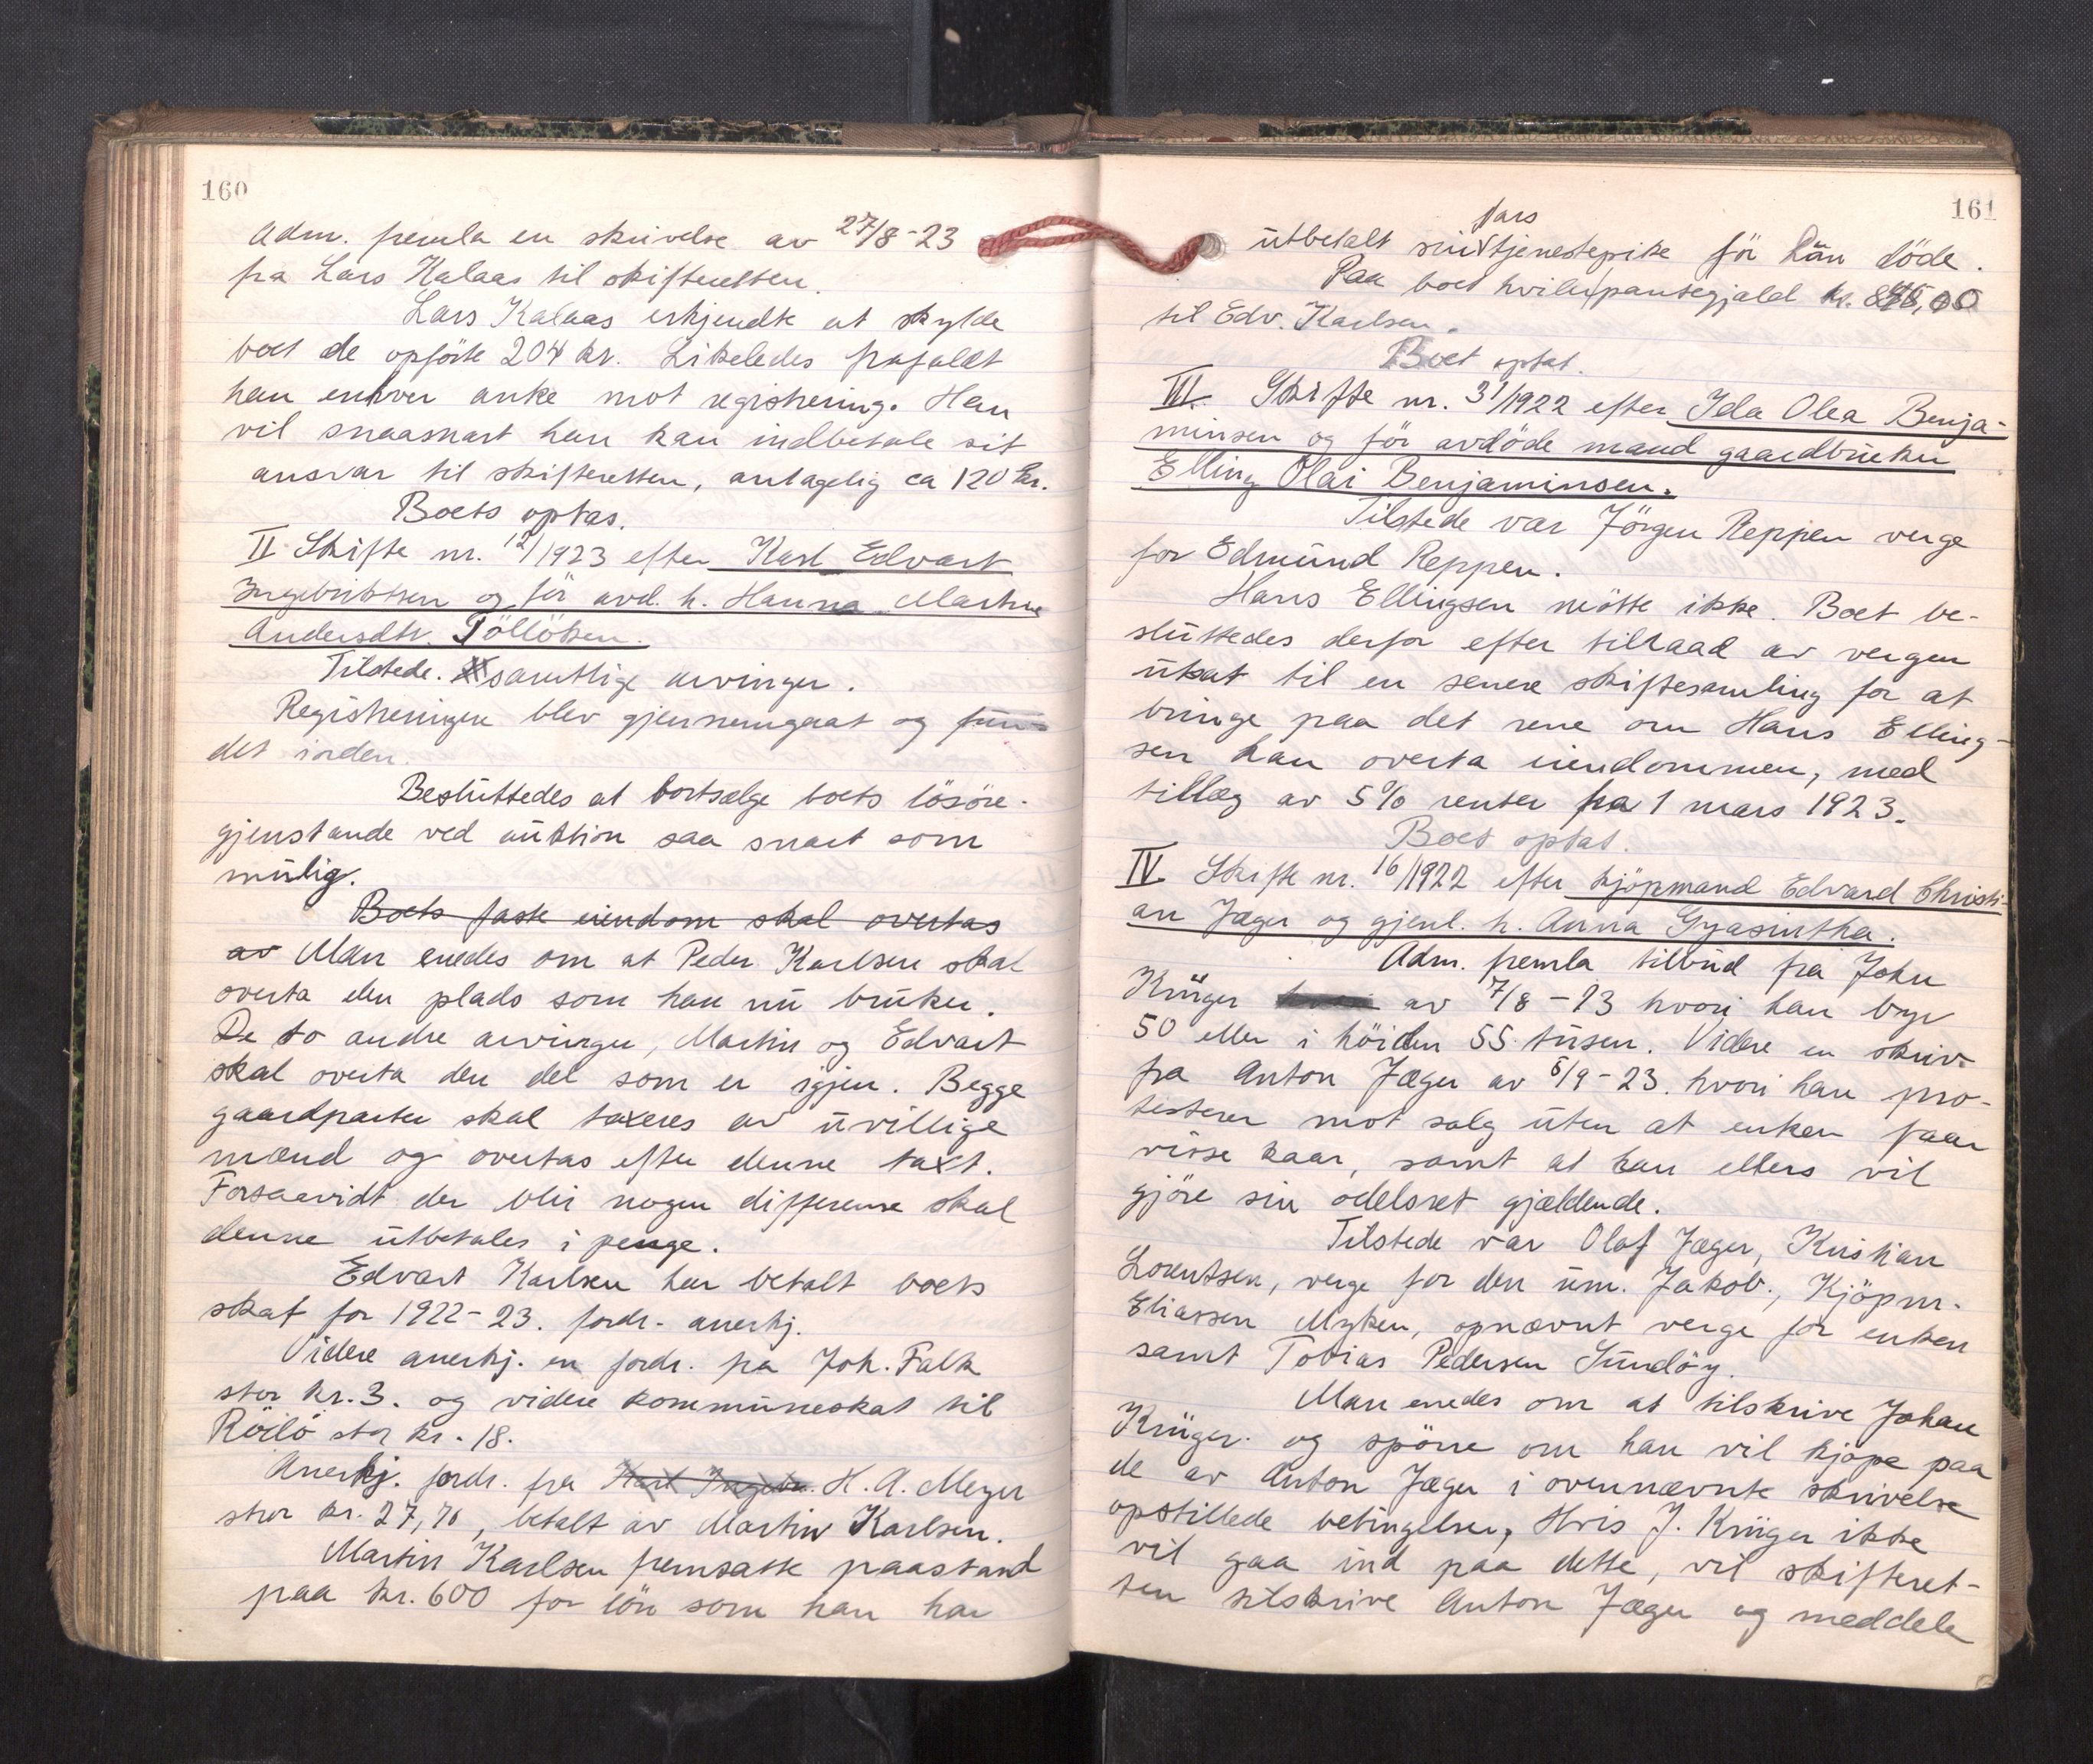 160
Adm. fremla en skrivelse av 27/8-23
fra Lars Kalaas til skifteretten.
Lars Kalaas erkjendte at skylde
boet de opførte 204 kr. Likeledes frafaldt
han enhver anke mot registrering. Han
vil snaasnart han kan indbetale sit
ansvar til skifteretten, antagelig ca 120 kr.
Boets optas.
II Skifte nr. 12/1923 efter Karl Edvart
Ingebrigtsen og før avd. h. Hanna Martine
Andersdtr. Töllöken.
Tilstede. samtlige arvinger.
Registreringen blev gjennemgaat og fun-
det iorden.
Besluttedes at bortsælge boets løsøre-
gjenstande ved auktion saa snart som
mulig.
Boets faste eiendom skal overtas
av Man enedes om at Peder Karlsen skal
overta den plads som han nu bruker.
De to andre arvinger, Martin og Edvart
skal overta den del som er igjen. Begge
gaardparter skal taxeres av uvillige
mænd og overtas efter denne taxt.
Forsaavidt der blir nogen difference skal
denne utbetales i penge.
Edvart Karlsen har betalt boets
skat for 1922-23. fordr. anerkj.
Videre anerkj. en fordr. fra Joh. Falk
stor kr. 3. og videre kommuneskat til
Rödö stor kr. 18.
Anerkj. fordr. fra Karl Ingebr. H. A. Meyer
stor kr. 27,76, betalt av Martin Karlsen.
Martin Karlsen fremsatte paastand
paa kr. 600 for løn som han har
161
fars
utbetalt sin tjenestepike før han døde.
Paa boet hviler pantegjæld kr.
til Edv. Karlsen.
Boet optat.
III. Skifte nr. 31/1922 efter Ida Olea Benja-
minsen og før avdøde mand gaardbruker
Elling Olai Benjaminsen.
Tilstede var Jörgen Reppen verge
for Edmund Reppen.
Hans Ellingsen møtte ikke. Boet be-
sluttedes derfor efter tilraad av vergen
utsat til en senere skiftesamling for at
bringe paa det rene om Hans Elling-
sen kan overta eiendommen, med
tillæg av 5% renter fra 1 mars 1923.
Boet optat.
IV. Skifte nr. 16/1922 efter kjöpmand Edvard Christi-
an Jæger og gjenl. h. Anna Gyasintha.
Adm. fremla tilbud fra John
Krüger av 7/8-23 hvori han byr
50 eller i høiden 55 tusen. Videre en skriv.
fra Anton Jæger av 6/9-23. hvori han pro-
testerer mot salg uten at enken faar
visse kaar, samt at han ellers vil
gjøre sin odelsret gjældende.
Tilstede var Olaf Jæger, Kristian
Lorentsen, verge for den um. Jakob., Kjöpm.
Eliassen Myken, opnævnt verge for enken
samt Tobias Pedersen Sundöy.
Man enedes om at tilskrive Johan
Krüger og spörre om han vil kjöpe paa
de av Anton Jæger i ovennævnte skrivelse
opstillede betingelser, Hvis J. Krüger ikke
vil gaa ind paa dette, vil skifteret-
ten tilskrive Anton Jæger og meddele